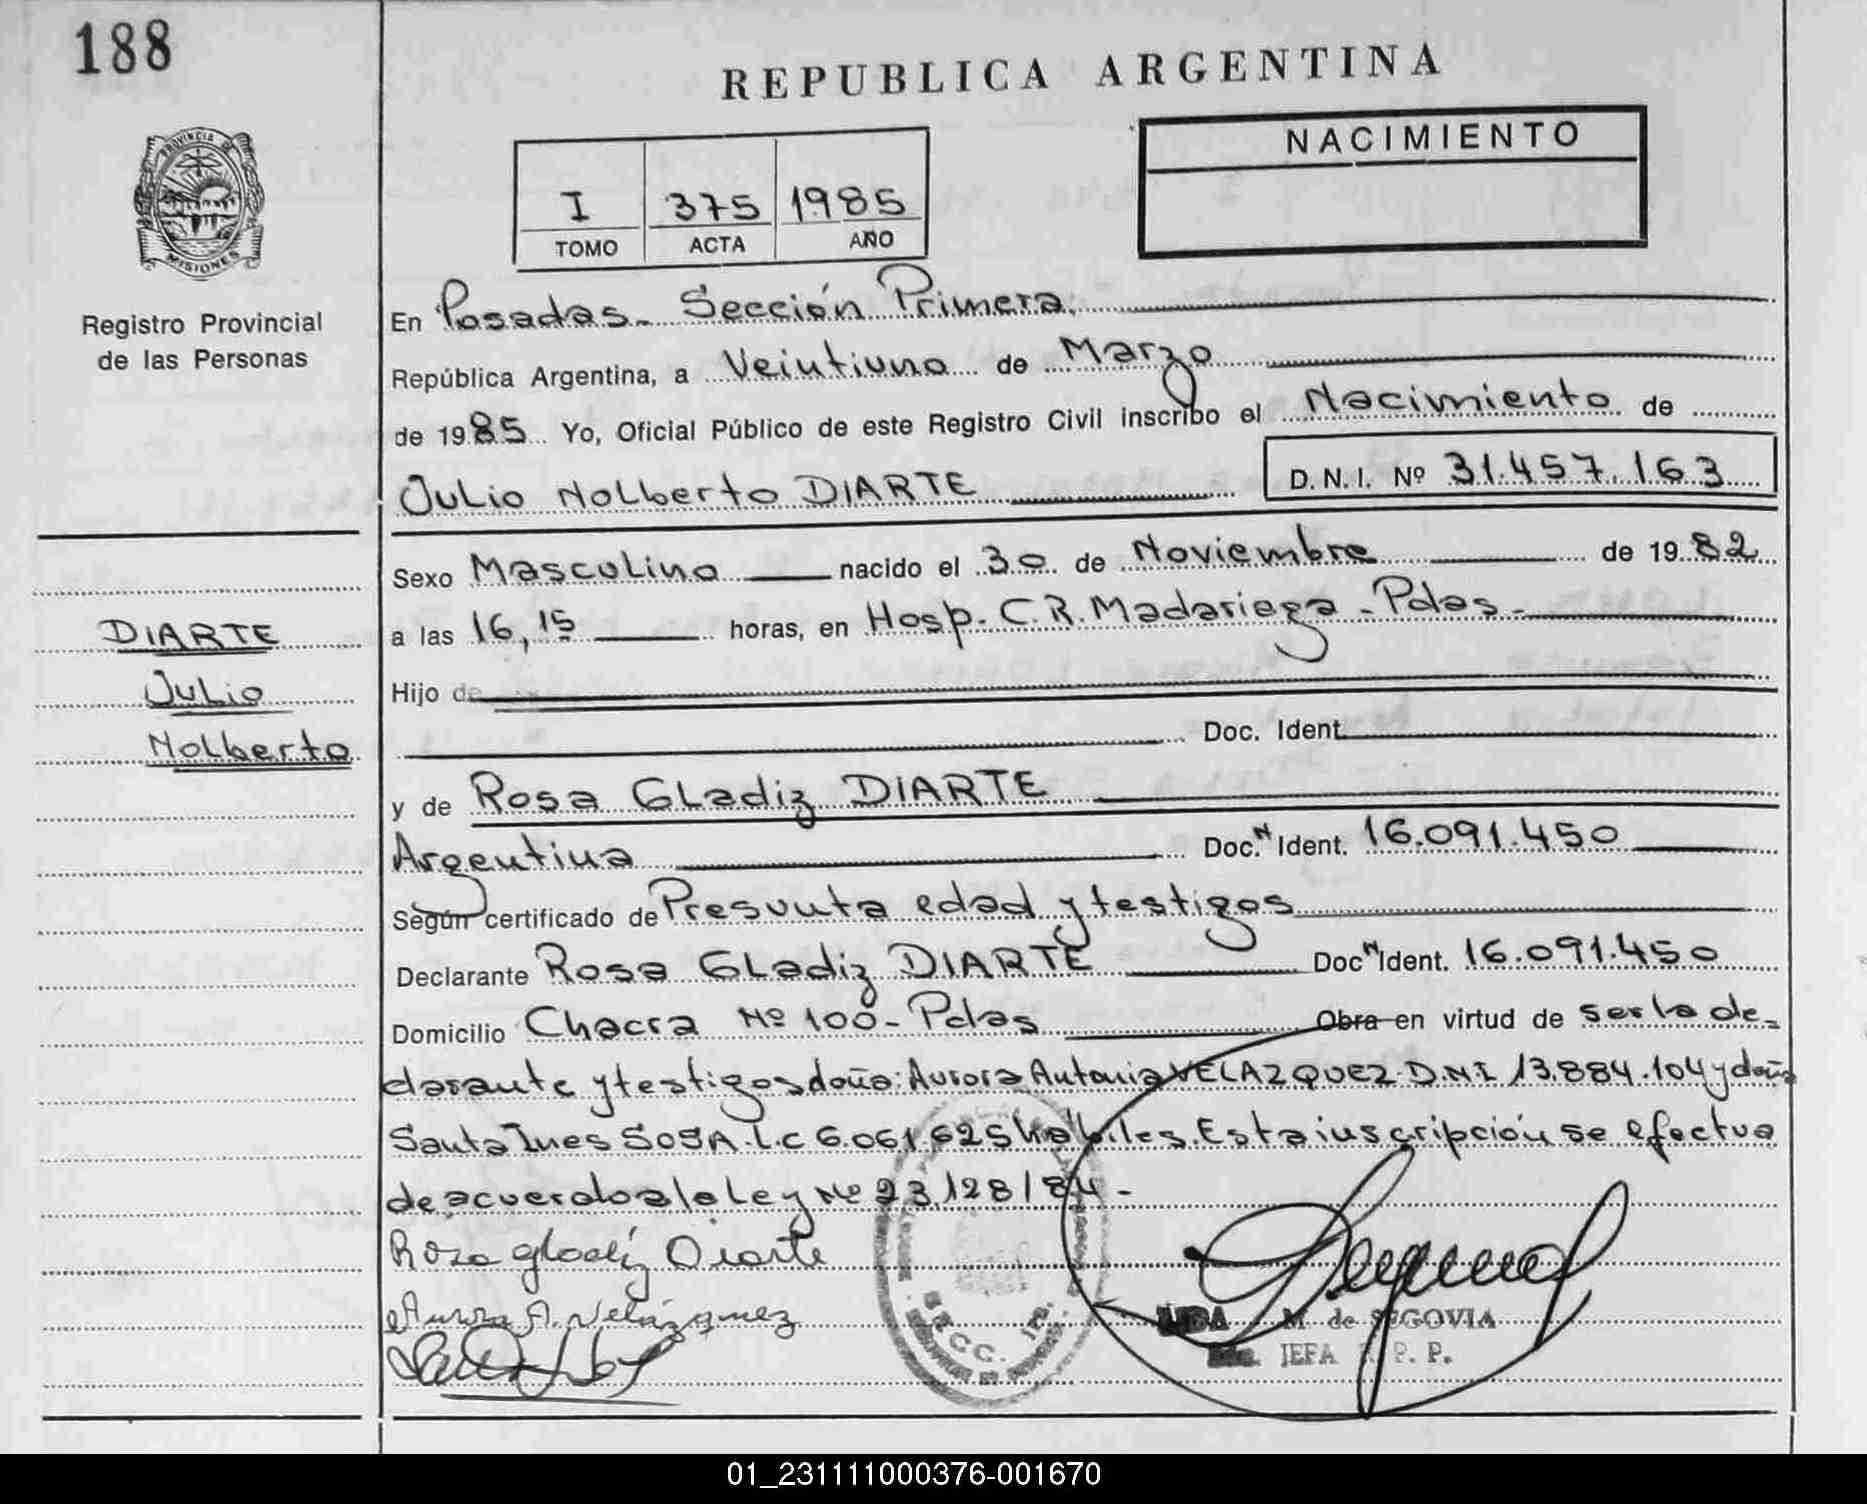 188
REPUBLICA ARGENTINA
NACIMIENTO
I 375 1985
TOMO ACTA AÑO
PROVINCIA DE
MISIONES
Registro Provincial
de las Personas
En Posadas- Sección Primera.
República Argentina, a Veintiuno de Marzo
de 1985 Yo, Oficial Público de este Registro Civil inscribo el Nacimiento de
Julio Nolberto DIARTE D.N.I. Nº 31.457.163
Sexo Masculino nacido el 30 de Noviembre de 1982
DIARTE
Julio
Nolberto
a las 16,15 horas, en Hosp. C.R. Madariaga - Pdas-
Hijo de
Doc. Ident.
y de Rosa Gladiz DIARTE
Argentina Doc. N Ident. 16.091.450
Según certificado de Presunta edad y testigos
Declarante Rosa Gladiz DIARTE Doc N Ident. 16.091.450
Domicilio Chacra Nº 100- Pdas Obra en virtud de ser la de-
clarante y testigos doña: Aurora Antonia VELAZQUEZ D.N.I 13.884.104 y doña
Santa Ines SOSA. L.C 6.061.625 habiles. Esta inscripción se efectua
de acuerdo a la Ley Nº 23.128/84-
Rosa Gladiz Diarte
Aurora A. Velázquez
SECC. 1ra.
M. de SEGOVIA
JEFA R. P. P.
01_231111000376-001670